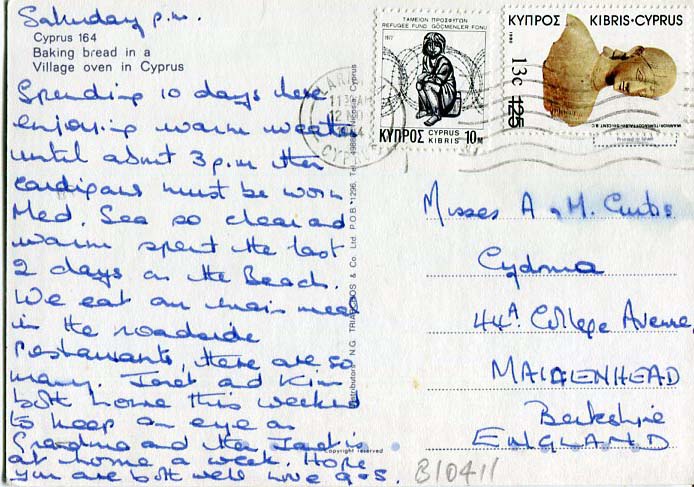 Saturday p.m.
Cyprus 164
Baking bread in a
Village oven in Cyprus
Spending 10 days here
enjoying warm weather
until about 3 p.m then
cardigans must be worn.
Med. Sea so clear and
warm spent the last
2 days on the Beach.
We eat our main meal
in the roadside
restaurants, there are so
many. Janet and Kim
both home this weekend
to keep an eye on
Grandma and then Janet is
at home a week. Hope
you are both well love
Copyright reserved
Distributors N.G. & Co. Ltd. P.O.B. 1296, Nicosia, Cyprus
ΤΑΜΕΙΟΝ ΠΡΟΣΦΥΓΩΝ
REFUGEE FUND GÖÇMENLER FONU
1977
ΚΥΠΡΟΣ CYPRUS KIBRIS 10M
ΚΥΠΡΟΣ KIBRIS·CYPRUS
1980
13c
125
Misses A & M. Curtis
Cydonia
44A College Avenue
MAIDENHEAD
Berkshire
ENGLAND
B10411